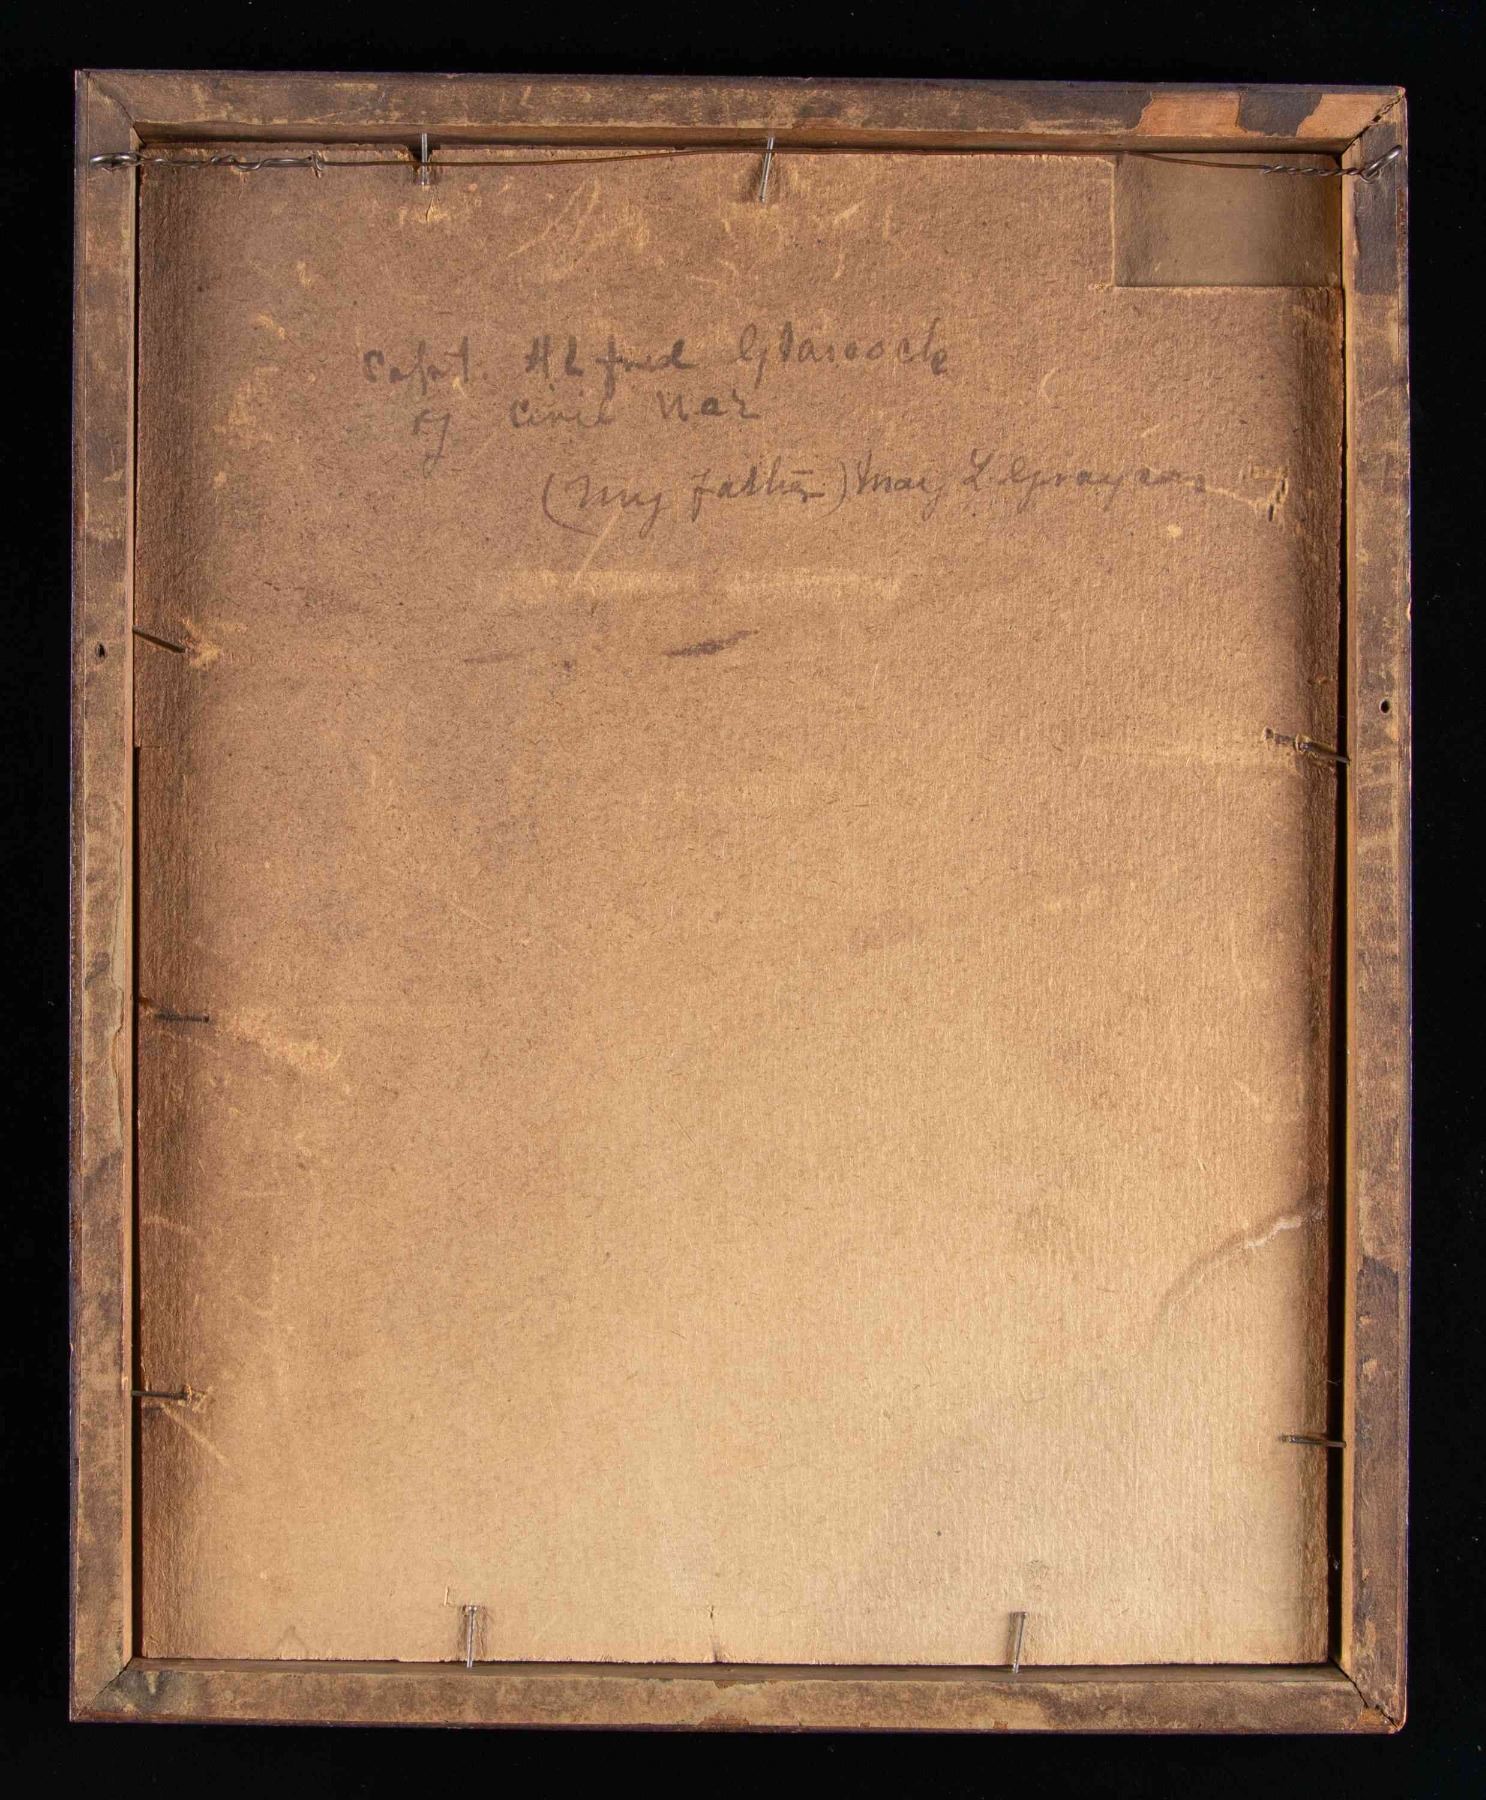 Capt. Alfred Glascock
of Civil War
(My father) May L. Grayson